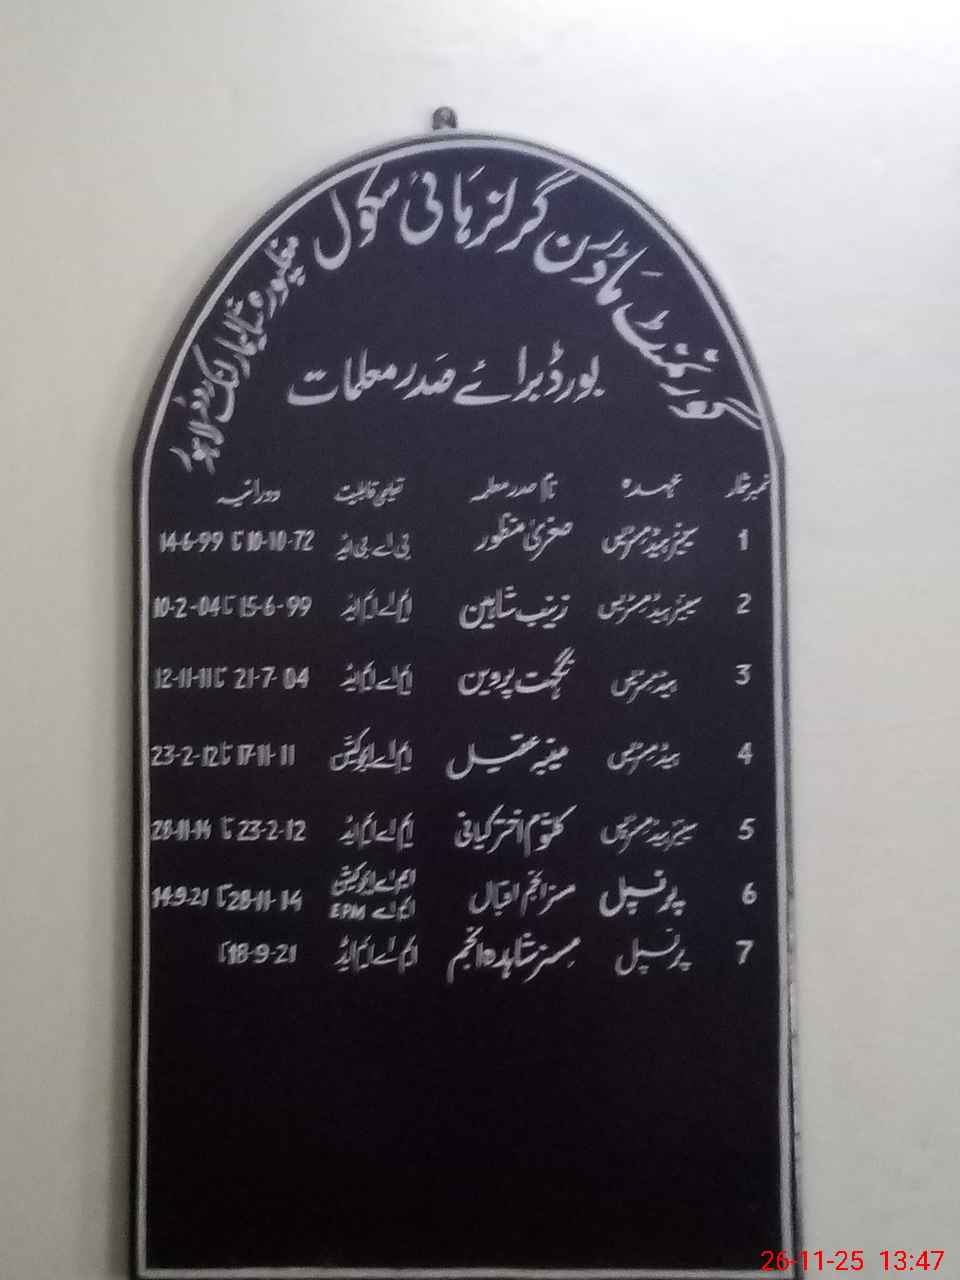 گورنمنٹ ماڈرن گرلز ہائی سکول مغلپورہ شالیمار لنک روڈ لاہور
بورڈ برائے صدر معلمات
نمبر شمار عہدہ نام صدر معلمہ تعلیمی قابلیت دورانیہ
1 سینئر ہیڈمسٹریس صغریٰ منظور بی اے بی ایڈ 10-10-72 تا 14-6-99
2 سینئر ہیڈمسٹریس زینب شاہین ایم اے ایم ایڈ 15-6-99 تا 10-2-04
3 ہیڈمسٹریس نگہت پروین ایم اے ایم ایڈ 21-7-04 تا 12-11-11
4 ہیڈمسٹریس عقیل ایم اے ایجوکیشن 17-11-11 تا 23-2-12
5 سینئر ہیڈمسٹریس کلثوم اختر کیانی ایم اے ایم ایڈ 23-2-12 تا 28-11-14
6 پرنسپل مسز انجم اقبال ایم اے ایجوکیشن ایم اے EPM 28-11-14 تا 14-9-21
7 پرنسپل مسز شاہدہ انجم ایم اے ایم ایڈ 18-9-21 تا
26-11-25 13:47